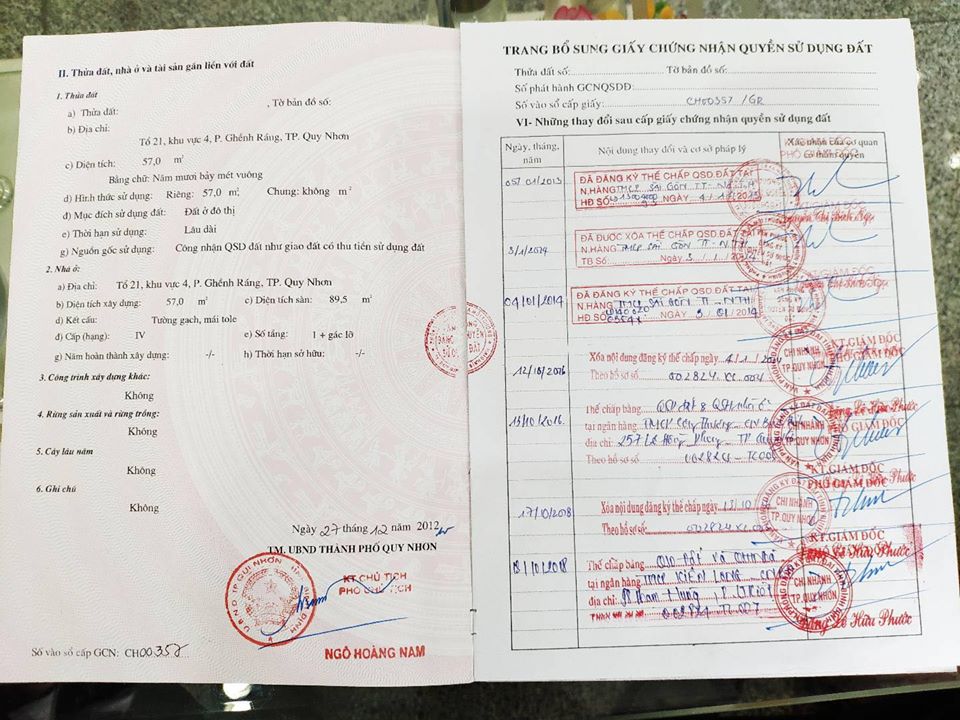 II. Thửa đất, nhà ở và tài sản gắn liền với đất
1. Thửa đất
a) Thửa đất: , Tờ bản đồ số:
b) Địa chỉ:
Tổ 21, khu vực 4, P. Ghềnh Ráng, TP. Quy Nhơn
c) Diện tích: 57,0 m²
Bằng chữ: Năm mươi bảy mét vuông
d) Hình thức sử dụng: Riêng: 57,0 m², Chung: không m²
đ) Mục đích sử dụng đất: Đất ở đô thị
e) Thời hạn sử dụng: Lâu dài
g) Nguồn gốc sử dụng: Công nhận QSD đất như giao đất có thu tiền sử dụng đất
2. Nhà ở:
a) Địa chỉ: Tổ 21, khu vực 4, P. Ghềnh Ráng, TP. Quy Nhơn
b) Diện tích xây dựng: 57,0 m² c) Diện tích sàn: 89,5 m²
d) Kết cấu: Tường gạch, mái tole
đ) Cấp (hạng): IV e) Số tầng: 1 + gác lỡ
g) Năm hoàn thành xây dựng: -/- h) Thời hạn sở hữu: -/-
3. Công trình xây dựng khác:
Không
4. Rừng sản xuất và rừng trồng:
Không
5. Cây lâu năm
Không
6. Ghi chú
Không
Ngày 27 tháng 12 năm 2012
TM. UBND THÀNH PHỐ QUY NHƠN
KT CHỦ TỊCH
PHÓ CHỦ TỊCH
NGÔ HOÀNG NAM
Số vào sổ cấp GCN: CH00357
TRANG BỔ SUNG GIẤY CHỨNG NHẬN QUYỀN SỬ DỤNG ĐẤT
Thửa đất số: Tờ bản đồ số:
Số phát hành GCNQSDĐ:
Số vào sổ cấp giấy: CH00357/GR
VI- Những thay đổi sau cấp giấy chứng nhận quyền sử dụng đất
Ngày, tháng, năm
Nội dung thay đổi và cơ sở pháp lý
Xác nhận của cơ quan có thẩm quyền
PHÓ GIÁM ĐỐC
ĐÃ ĐĂNG KÝ THẾ CHẤP QSD.ĐẤT TẠI
N.HÀNG TMCP SÀI GÒN TT-
HĐ SỐ NGÀY
3/1/2014
ĐÃ ĐƯỢC XÓA THẾ CHẤP QSD.ĐẤT TẠI
N.HÀNG TMCP SÀI GÒN TT-NTH
TB Số: Ngày
04/01/2014
ĐÃ ĐĂNG KÝ THẾ CHẤP QSD.ĐẤT TẠI
N.HÀNG TMCP SÀI GÒN TT-NTH
HĐ SỐ NGÀY 3/01/2014
KT.GIÁM ĐỐC
PHÓ GIÁM ĐỐC
CHI NHÁNH
TP.QUY NHƠN
12/10/2016
Xóa nội dung đăng ký thế chấp ngày 4/1/
Theo hồ sơ số 002824.
Lê Hữu Phước
13/10/2016
Thế chấp bằng
tại ngân hàng TMCP Công Thương
địa chỉ: 257 Lê Hồng Phong TP
Theo hồ sơ số 002824
CHI NHÁNH
TP.QUY NHƠN
KT.GIÁM ĐỐC
PHÓ GIÁM ĐỐC
Lê Hữu Phước
17/10/2018
Xóa nội dung đăng ký thế chấp ngày 13/10
Theo hồ sơ số: 002824
CHI NHÁNH
TP.QUY NHƠN
KT.GIÁM ĐỐC
Lê Hữu Phước
18/10/2018
Thế chấp bằng
tại ngân hàng TMCP KIÊN LONG
địa chỉ:
002824
CHI NHÁNH
TP.QUY NHƠN
Lê Hữu Phước